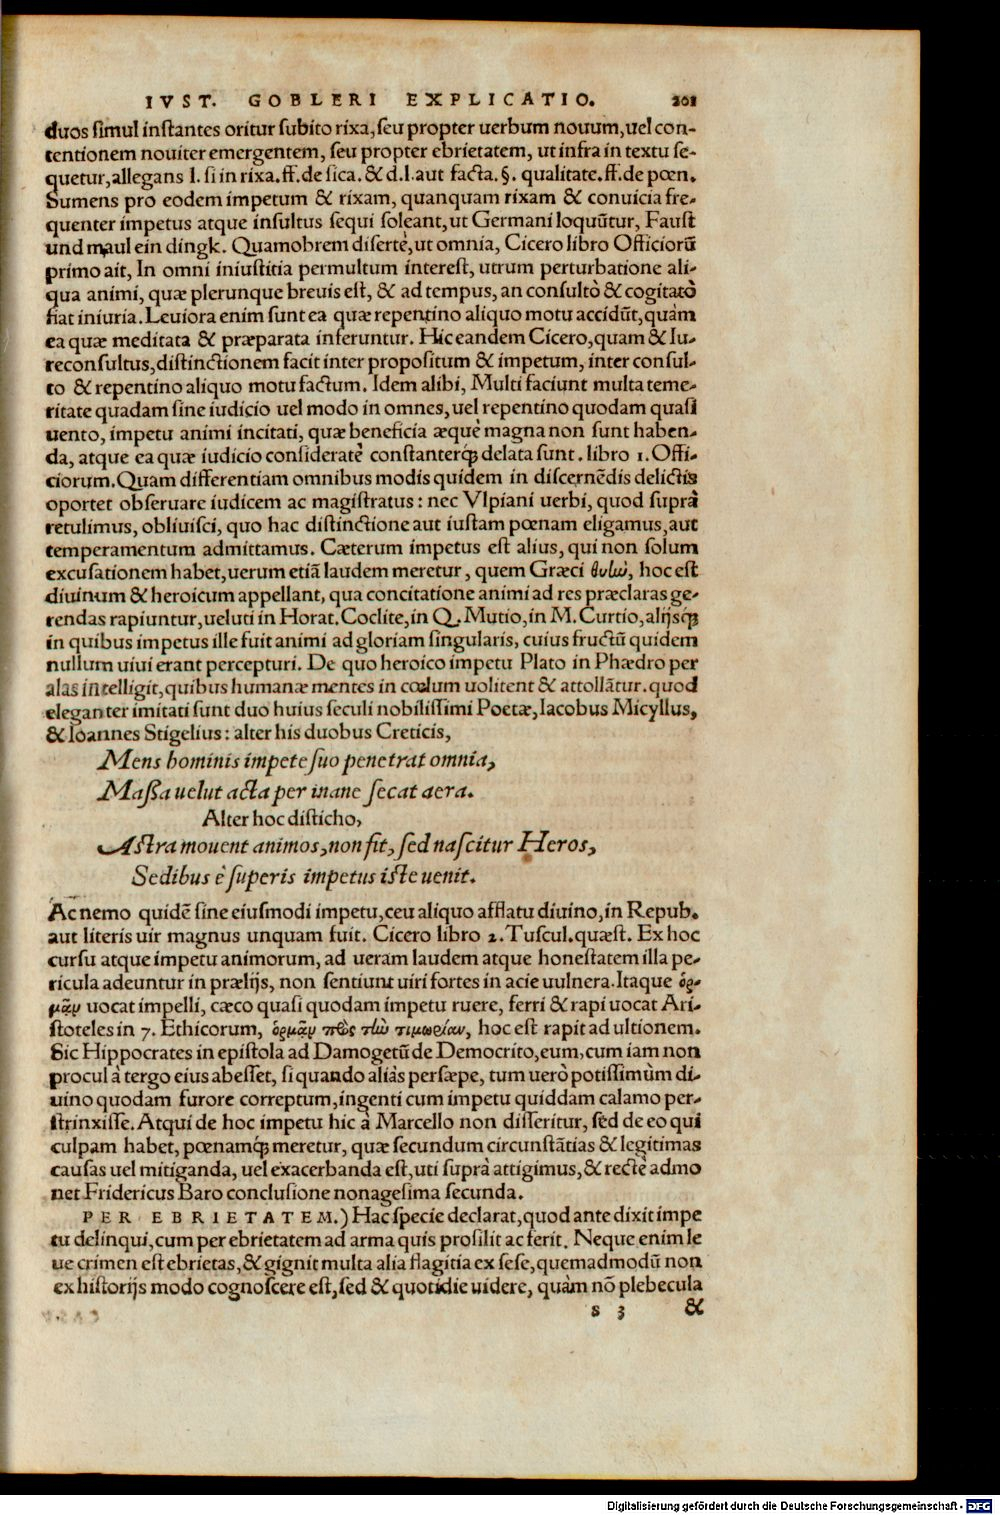 IVST. GOBLERI EXPLICATIO. 201
duos ſimul inſtantes oritur ſubito rixa, ſeu propter uerbum nouum, uel con-
tentionem nouiter emergentem, ſeu propter ebrietatem, ut infra in textu ſe-
quetur, allegans l. ſi in rixa. ff. de ſica. & d. l. aut facta. §. qualitate. ff. de pœn.
Sumens pro eodem impetum & rixam, quanquam rixam & conuicia fre-
quenter impetus atque inſultus ſequi ſoleant, ut Germani loquũtur, Fauſt
und maul ein dingk. Quamobrem diſertè, ut omnia, Cicero libro Officiorũ
primo ait, In omni iniuſtitia permultum intereſt, utrum perturbatione ali-
qua animi, quæ plerunque breuis eſt, & ad tempus, an conſultò & cogitatò
fiat iniuria. Leuiora enim ſunt ea quæ repentino aliquo motu accidũt, quàm
ea quæ meditata & præparata inferuntur. Hic eandem Cicero, quam & Iu-
reconſultus, diſtinctionem facit inter propoſitum & impetum, inter conſul-
to & repentino aliquo motu factum. Idem alibi, Multi faciunt multa teme-
ritate quadam ſine iudicio uel modo in omnes, uel repentino quodam quaſi
uento, impetu animi incitati, quæ beneficia æquè magna non ſunt haben-
da, atque ea quæ iudicio conſideratè conſtanterq́; delata ſunt. libro 1. Offi-
ciorum. Quam differentiam omnibus modis quidem in diſcernẽdis delictis
oportet obſeruare iudicem ac magiſtratus: nec Vlpiani uerbi, quod ſuprà
retulimus, obliuiſci, quo hac diſtinctione aut iuſtam pœnam eligamus, aut
temperamentum admittamus. Cæterum impetus eſt alius, qui non ſolum
excuſationem habet, uerum etiã laudem meretur, quem Græci θυμὸν, hoc eſt
diuinum & heroicum appellant, qua concitatione animi ad res præclaras ge-
rendas rapiuntur, ueluti in Horat. Coclite, in Q. Mutio, in M. Curtio, alijsq́;
in quibus impetus ille fuit animi ad gloriam ſingularis, cuius fructũ quidem
nullum uiui erant percepturi. De quo heroico impetu Plato in Phædro per
alas intelligit, quibus humanæ mentes in cœlum uolitent & attollãtur. quod
eleganter imitati ſunt duo huius ſeculi nobiliſſimi Poetæ, Iacobus Micyllus,
& Ioannes Stigelius: alter his duobus Creticis,
Mens hominis impete ſuo penetrat omnia,
Maßa uelut acta per inane ſecat aera.
Alter hoc diſticho,
Aſtra mouent animos, non fit, ſed naſcitur Heros,
Sedibus è ſuperis impetus iſte uenit.
Ac nemo quidẽ ſine eiuſmodi impetu, ceu aliquo afflatu diuino, in Repub.
aut literis uir magnus unquam fuit. Cicero libro 2. Tuſcul. quæſt. Ex hoc
curſu atque impetu animorum, ad ueram laudem atque honeſtatem illa pe-
ricula adeuntur in prælijs, non ſentiunt uiri fortes in acie uulnera. Itaque ὁρ-
μᾶν uocat impelli, cæco quaſi quodam impetu ruere, ferri & rapi uocat Ari-
ſtoteles in 7. Ethicorum, ὁρμᾶν πρὸς τὴν τιμωρίαν, hoc eſt rapit ad ultionem.
Sic Hippocrates in epiſtola ad Damogetũ de Democrito, eum, cum iam non
procul à tergo eius abeſſet, ſi quando aliàs perſæpe, tum uerò potiſſimùm di-
uino quodam furore correptum, ingenti cum impetu quiddam calamo per-
ſtrinxiſſe. Atqui de hoc impetu hic à Marcello non diſſeritur, ſed de eo qui
culpam habet, pœnamq́; meretur, quæ ſecundum circunſtãtias & legitimas
cauſas uel mitiganda, uel exacerbanda eſt, uti ſuprà attigimus, & rectè admo
net Fridericus Baro concluſione nonageſima ſecunda.
PER EBRIETATEM.) Hac ſpecie declarat, quod ante dixit impe
tu delinqui, cum per ebrietatem ad arma quis proſilit ac ferit. Neque enim le
ue crimen eſt ebrietas, & gignit multa alia flagitia ex ſeſe, quemadmodũ non
ex hiſtorijs modo cognoſcere eſt, ſed & quotidie uidere, quàm nõ plebecula
s 3 &
Digitalisierung gefördert durch die Deutsche Forschungsgemeinschaft - DFG